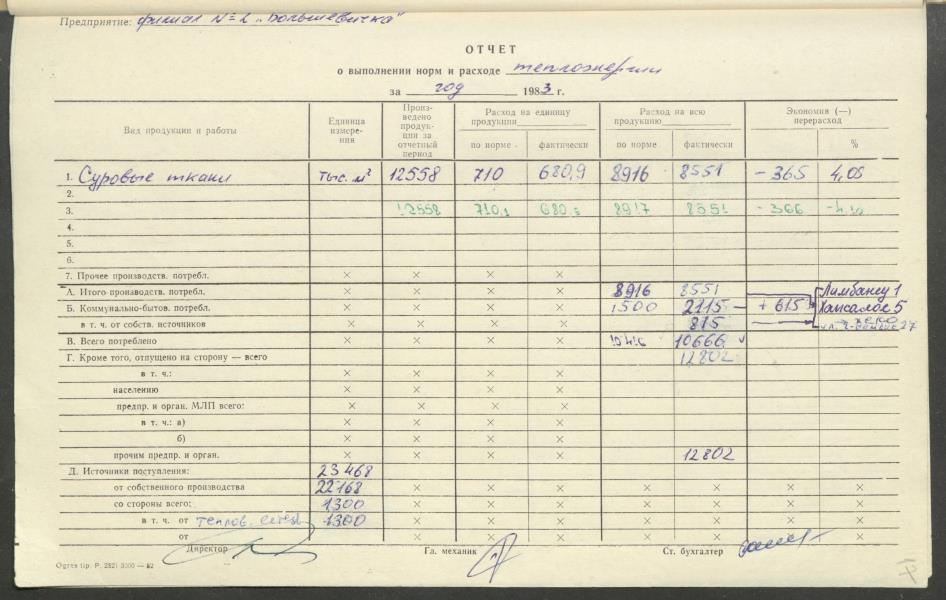 Предприятие: филиал № 2 „Большевичка"
ОТЧЕТ
о выполнении норм и расходе теплоэнергии
за год 1983 г.
Вид продукции и работы
Единица измере-ния
Произ-ведено продук-ции за отчетный период
Расход на единицу продукции
по норме
фактически
Расход на всю продукцию
по норме
фактически
Экономия (—) перерасход
%
1. Суровые ткани тыс. м² 12558 710 680,9 8916 8551 – 365 4,05
2.
3. 12558 710,1 680,5 8917 8551 – 366 -4,10
4.
5.
6.
7. Прочее производств. потребл. × × × ×
А. Итого производств. потребл. × × × × 8916 8551 Лимбажу 1
Б. Коммунально-бытов. потребл. × × × × 1500 2115 — + 615 Хапсалас 5
в т. ч. от собств. источников × × × × 815 27
В. Всего потреблено × × × × 10416 10666
Г. Кроме того, отпущено на сторону — всего 12802
в т. ч.: × × × ×
населению × × × ×
предпр. и орган. МЛП всего: × × × ×
в т. ч.: а) × × × ×
б) × × × ×
прочим предпр. и орган. × × × × 12802
Д. Источники поступления: 23468
от собственного производства 22168 × × × × × × ×
со стороны всего: 1300 × × × × × × ×
в т. ч. от теплов. сетей 1300 × × × × × × ×
от × × × × × × ×
Директор Гл. механик Ст. бухгалтер
Ogres tip. P. 2821 3000 — 82